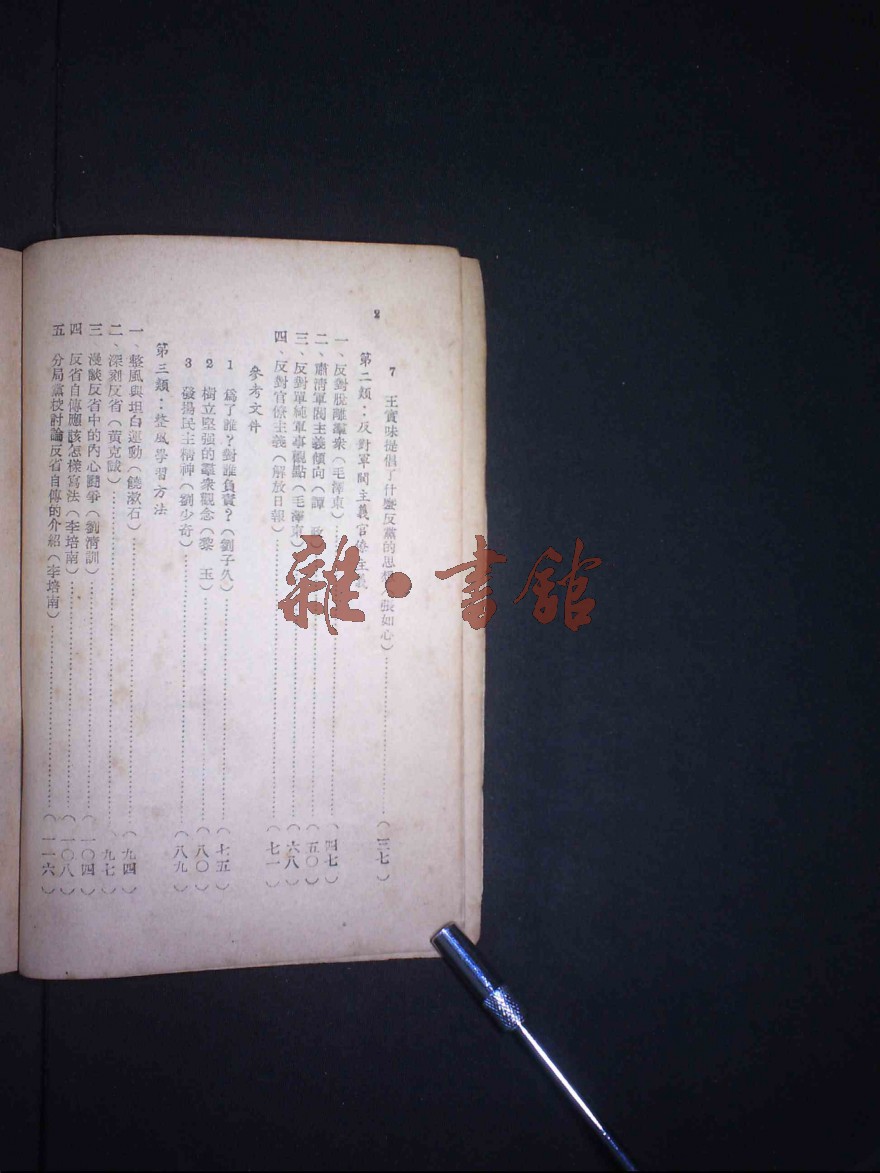 2
7 王實味提倡了什麼反黨的思想（張如心）…………（三七）
第二類：反對軍閥主義官僚主義
一、反對脫離羣衆（毛澤東）…………（四七）
二、肅清軍閥主義傾向（譚 政）…………（五〇）
三、反對單純軍事觀點（毛澤東）…………（六八）
四、反對官僚主義（解放日報）…………（七一）
參考文件
1 爲了誰？對誰負責？（劉子久）…………（七五）
2 樹立堅强的羣衆觀念（黎 玉）…………（八〇）
3 發揚民主精神（劉少奇）…………（八九）
第三類：整風學習方法
一、整風與坦白運動（饒漱石）…………（九四）
二、深刻反省（黃克誠）…………（九七）
三 漫談反省中的內心鬪爭（劉清訓）…………（一〇四）
四 反省自傳應該怎樣寫法（李培南）…………（一〇八）
五 分局黨校討論反省自傳的介紹（李培南）…………（一一六）
雜·書館